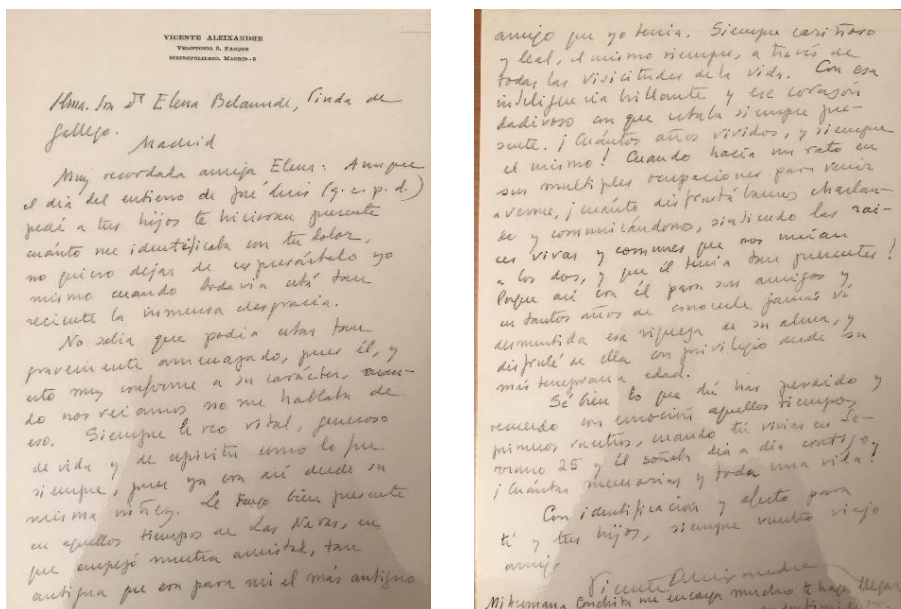 VICENTE ALEIXANDRE
VELINTONIA 3, PARQUE
METROPOLITANO. MADRID-3
Ilma. Sra. Dª Elena Belaunde, Viuda de
Gallego.
Madrid
Muy recordada amiga Elena: Aunque
el día del entierro de José Luis (q. e. p. d.)
pedí a tus hijos te hicieran presente
cuánto me identificaba con tu dolor,
no quiero dejar de expresártelo yo
mismo cuando todavía está tan
reciente la inmensa desgracia.
No sabía que podía estar tan
gravemente amenazado, pues él, y
esto muy conforme a su carácter, cuan-
do nos veíamos no me hablaba de
eso. Siempre le veo vital, generoso
de vida y de espíritu como lo fue
siempre, pues ya era así desde su
misma niñez. Le tengo bien presente
en aquellos tiempos de Las Navas, en
que empezó nuestra amistad, tan
antigua que era para mí el más antiguo
amigo que yo tenía. Siempre cariñoso
y leal, el mismo siempre, a través de
todas las vicisitudes de la vida. Con esa
inteligencia brillante y ese corazón
dadivoso con que estaba siempre pre-
sente. ¡Cuántos años vividos, y siempre
el mismo! Cuando hacía un rato en
sus multiples ocupaciones para venir
a verme, ¡cuánto disfrutábamos charlan-
do y comunicándonos, sintiendo las raí-
ces vivas y comunes que nos unían
a los dos, y que él tenía tan presentes!
Porque así era él para sus amigos y
en tantos años de conocerle jamás vi
desmentida esa riqueza de su alma, y
disfruté de ella con privilegio desde su
más temprana edad.
Sé bien lo que tú has perdido y
recuerdo con emoción aquellos tiempos
primeros vuestros, cuando tú vivías en Se-
rrano 25 y él soñaba día a día contigo,
¡Cuántas memorias y toda una vida!
Con identificación y afecto para
ti y tus hijos, siempre vuestro viejo
amigo
Vicente Aleixandre
Mi hermana Conchita me encarga mucho te haga llegar